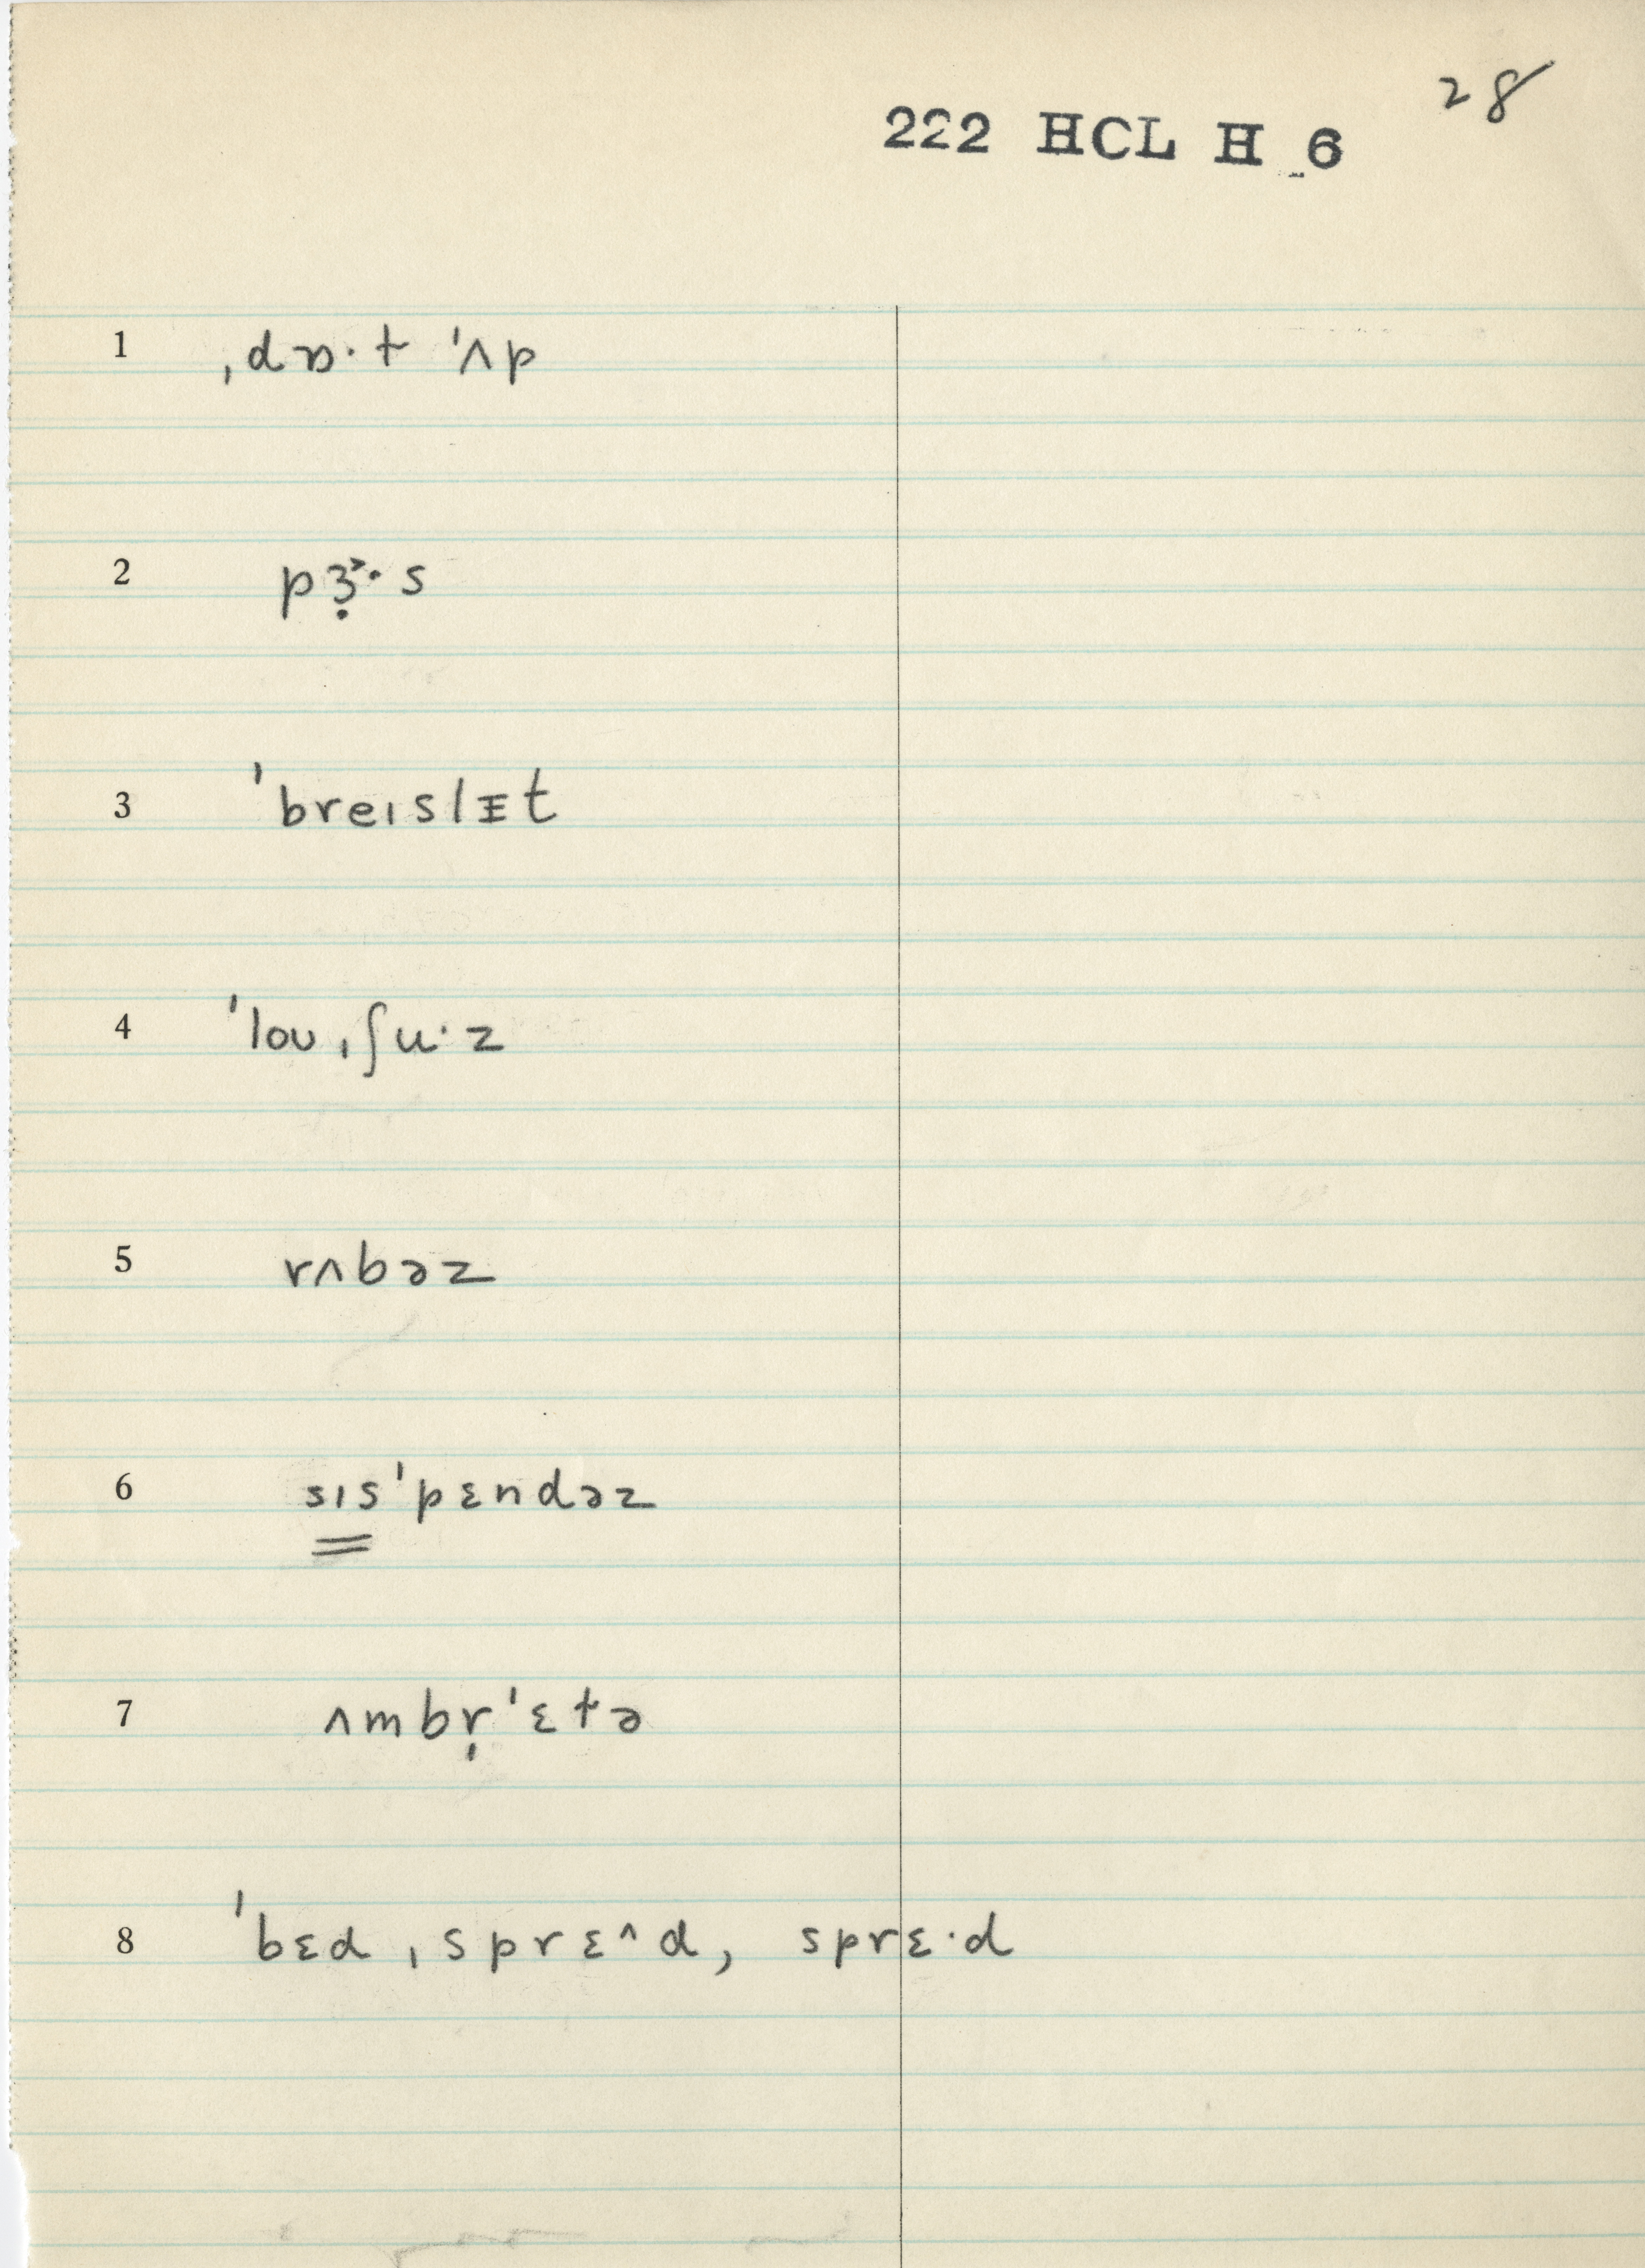 28
222 HCL H 6
1 ˌdɒ·t ˈʌp
2 pɜ̣˞·s
3 ˈbreɪslᵻt
4 ˈloʊˌʃu·z
5 rʌbəz
6 sɪsˈpɛndəz
7 ʌmbr̩ˈɛtə
8 ˈbɛdˌsprɛ^d, sprɛ·d